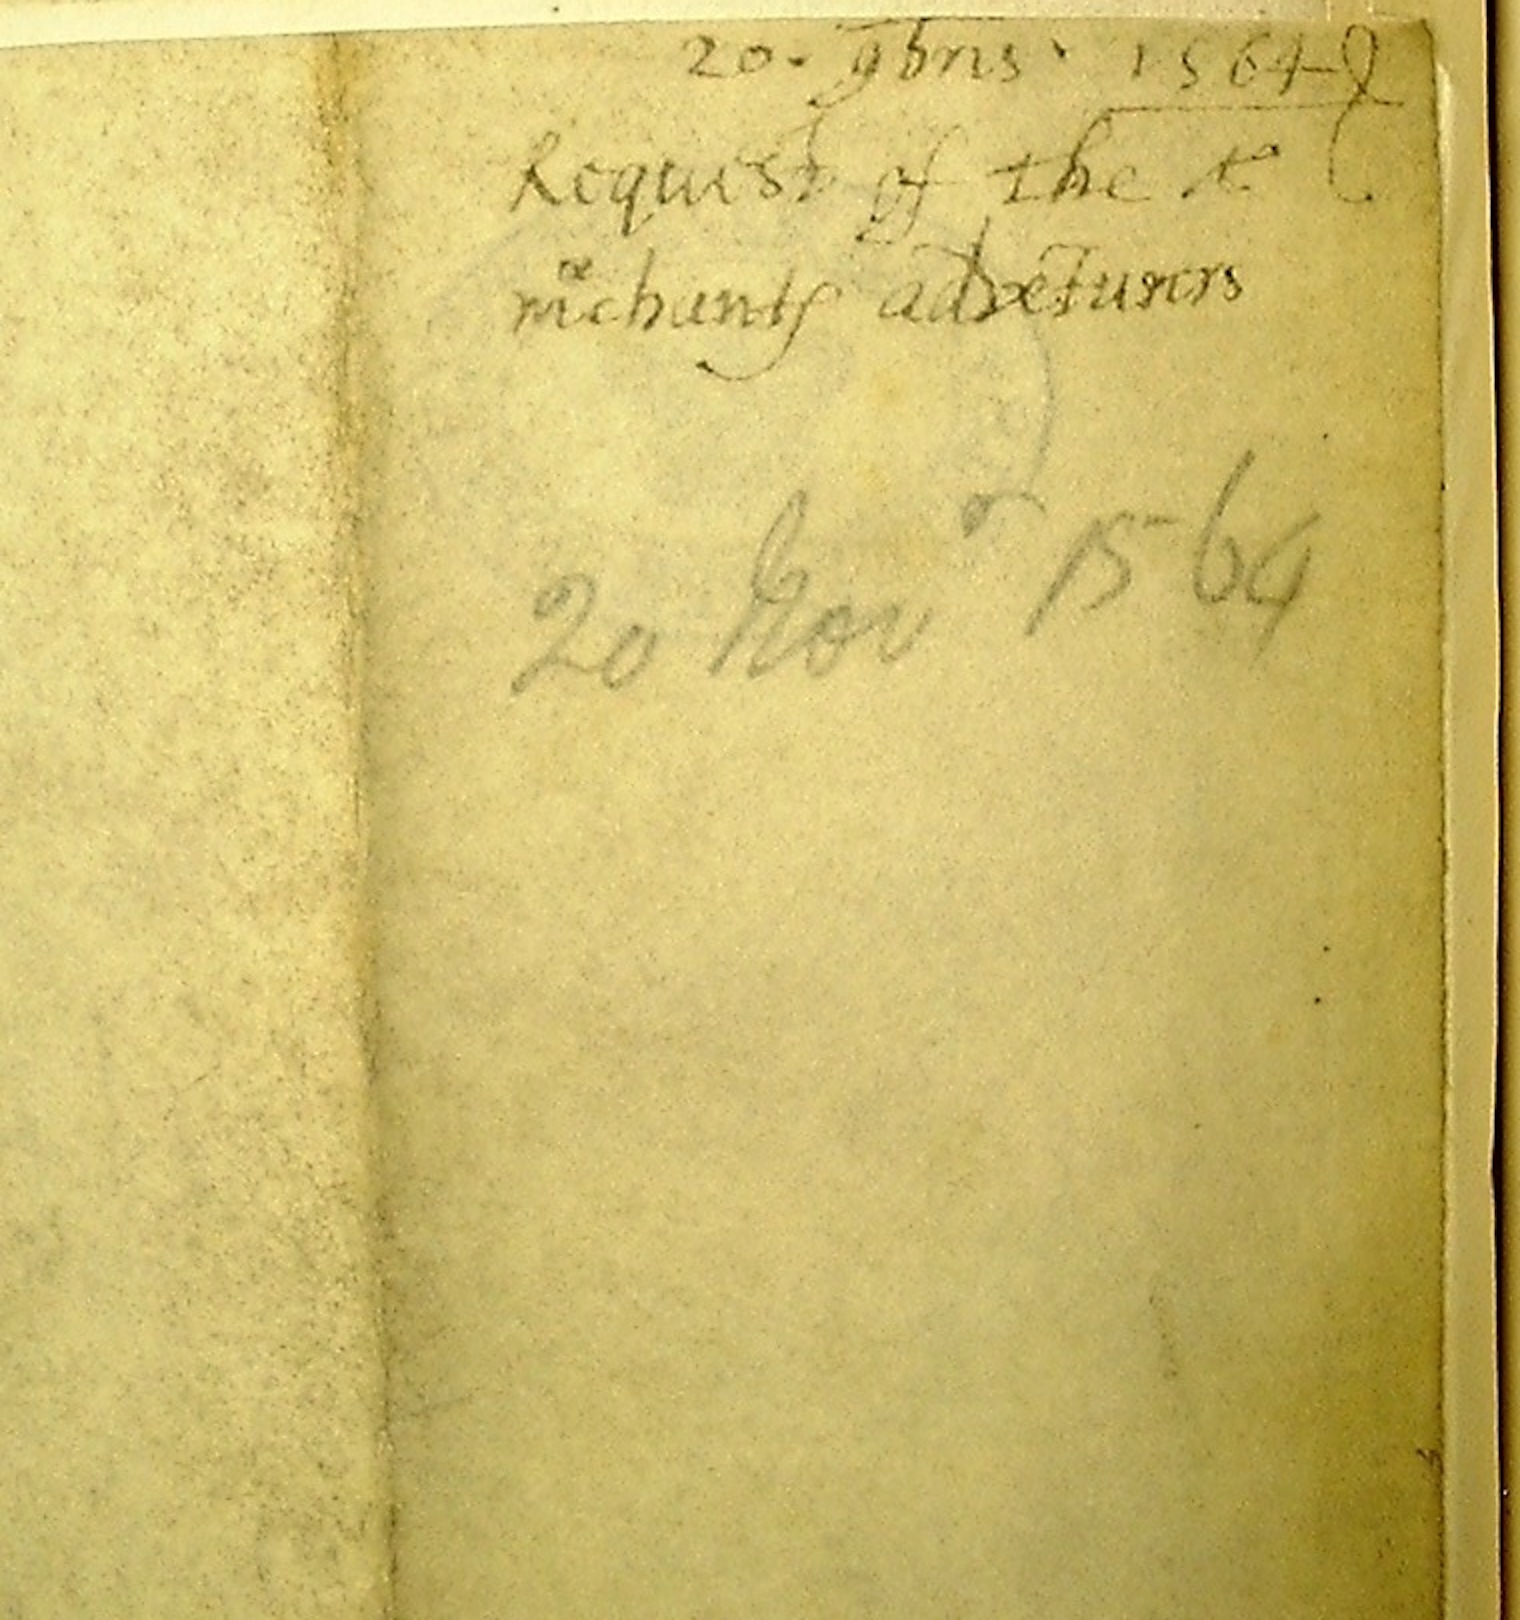 20. 9bris. 1564
Request of the
mchants advēturers
20 Novr 1564